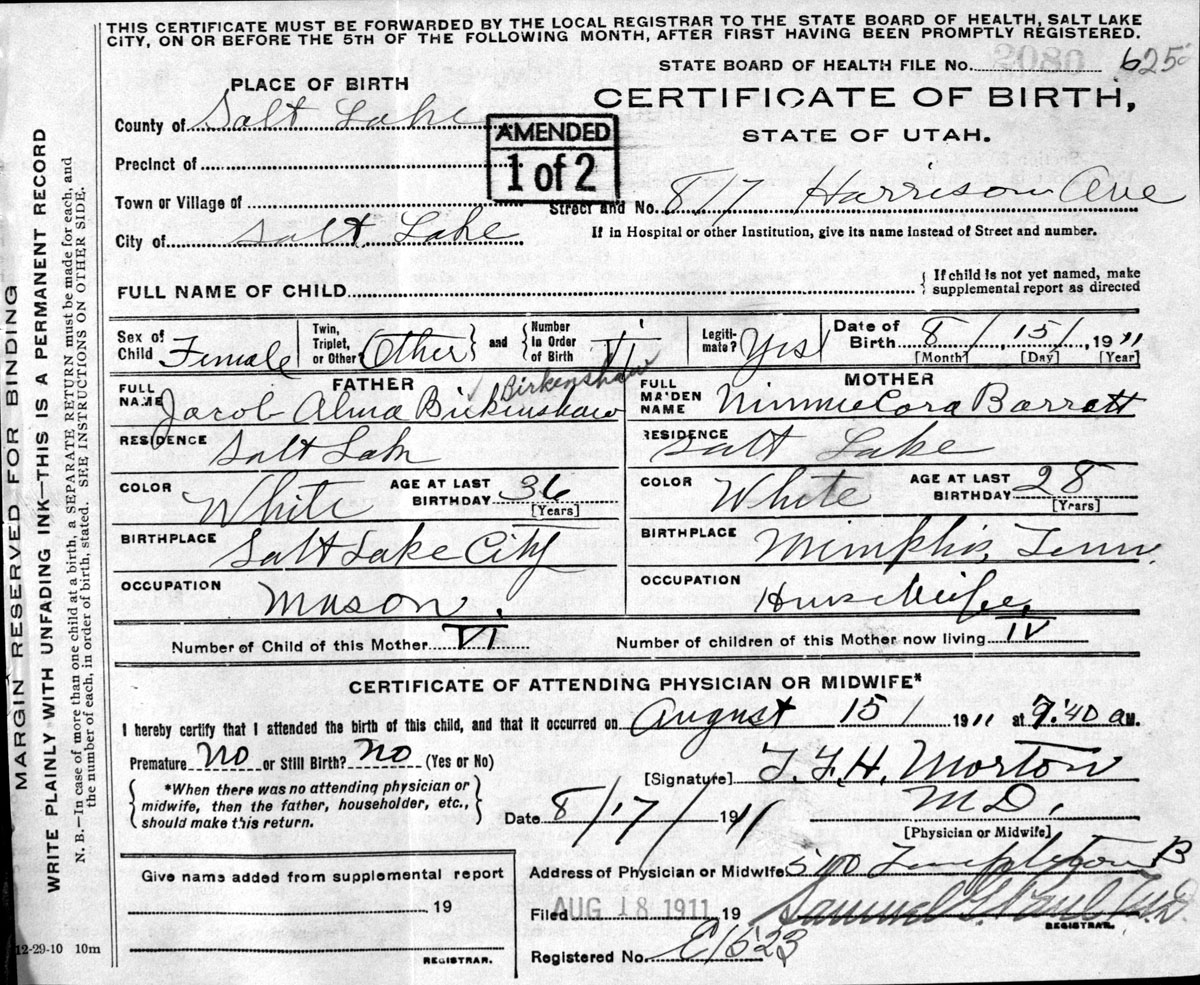 THIS CERTIFICATE MUST BE FORWARDED BY THE LOCAL REGISTRAR TO THE STATE BOARD OF HEALTH, SALT LAKE
CITY, ON OR BEFORE THE 5TH OF THE FOLLOWING MONTH, AFTER FIRST HAVING BEEN PROMPTLY REGISTERED.
STATE BOARD OF HEALTH FILE No. 625
PLACE OF BIRTH
CERTIFICATE OF BIRTH,
STATE OF UTAH.
County of Salt Lake
AMENDED
1 of 2
Precinct of
Town or Village of
Street and No. 817 Harrison Ave
City of Salt Lake
If in Hospital or other Institution, give its name instead of Street and number.
FULL NAME OF CHILD
If child is not yet named, make
supplemental report as directed
Sex of Child Female
Twin, Triplet, or Other Other and
Number in Order of Birth
Legiti-mate? Yes
Date of Birth 8/15/1911
[Month] [Day] [Year]
FATHER
Birkenshaw
FULL NAME Jacob Alma Birkinshaw
MOTHER
FULL MAIDEN NAME Minnie Cora Barratt
RESIDENCE Salt Lake
RESIDENCE Salt Lake
COLOR White
AGE AT LAST BIRTHDAY 36
[Years]
COLOR White
AGE AT LAST BIRTHDAY 28
[Years]
BIRTHPLACE Salt Lake City
BIRTHPLACE Memphis, Tenn.
OCCUPATION Mason.
OCCUPATION Housewife
Number of Child of this Mother VI
Number of children of this Mother now living IV
CERTIFICATE OF ATTENDING PHYSICIAN OR MIDWIFE*
I hereby certify that I attended the birth of this child, and that it occurred on August 15/ 1911 at 9:40 a.M.
Premature No or Still Birth? No (Yes or No)
[Signature] T. F. H. Morton
M.D.
[Physician or Midwife]
*When there was no attending physician or
midwife, then the father, householder, etc.,
should make this return.
Date 8/17/1911
Address of Physician or Midwife 500 Templeton B
Give name added from supplemental report
19
REGISTRAR.
Filed AUG 18 1911 19
Samuel G. Paul
REGISTRAR.
Registered No. E1523
12-29-10 10m
MARGIN RESERVED FOR BINDING
WRITE PLAINLY WITH UNFADING INK—THIS IS A PERMANENT RECORD
N. B.—In case of more than one child at a birth, a SEPARATE RETURN must be made for each, and
the number of each, in order of birth, stated. SEE INSTRUCTIONS ON OTHER SIDE.